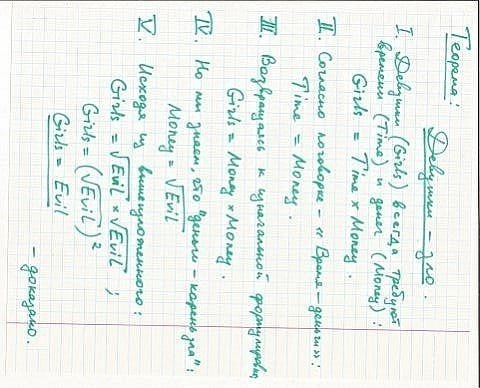 Теорема:
Девушки – зло.
I. Девушки (Girls) всегда требуют
времени (Time) и денег (Money):
Girls = Time × Money.
II. Согласно поговорке – «Время – деньги»:
Time = Money.
III. Возвращаясь к изначальной формулировке
Girls = Money × Money.
IV. Но мы знаем, что "деньги – корень зла":
Money = √Evil
V. Исходя из вышеизложенного:
Girls = √Evil × √Evil ;
Girls = (√Evil)²
Girls = Evil
– доказано.